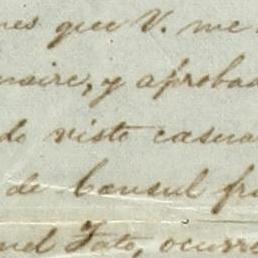 nes que V. me
nsire, y aprobad
do visto casua
de Consul fra
nel Tato, ocurre